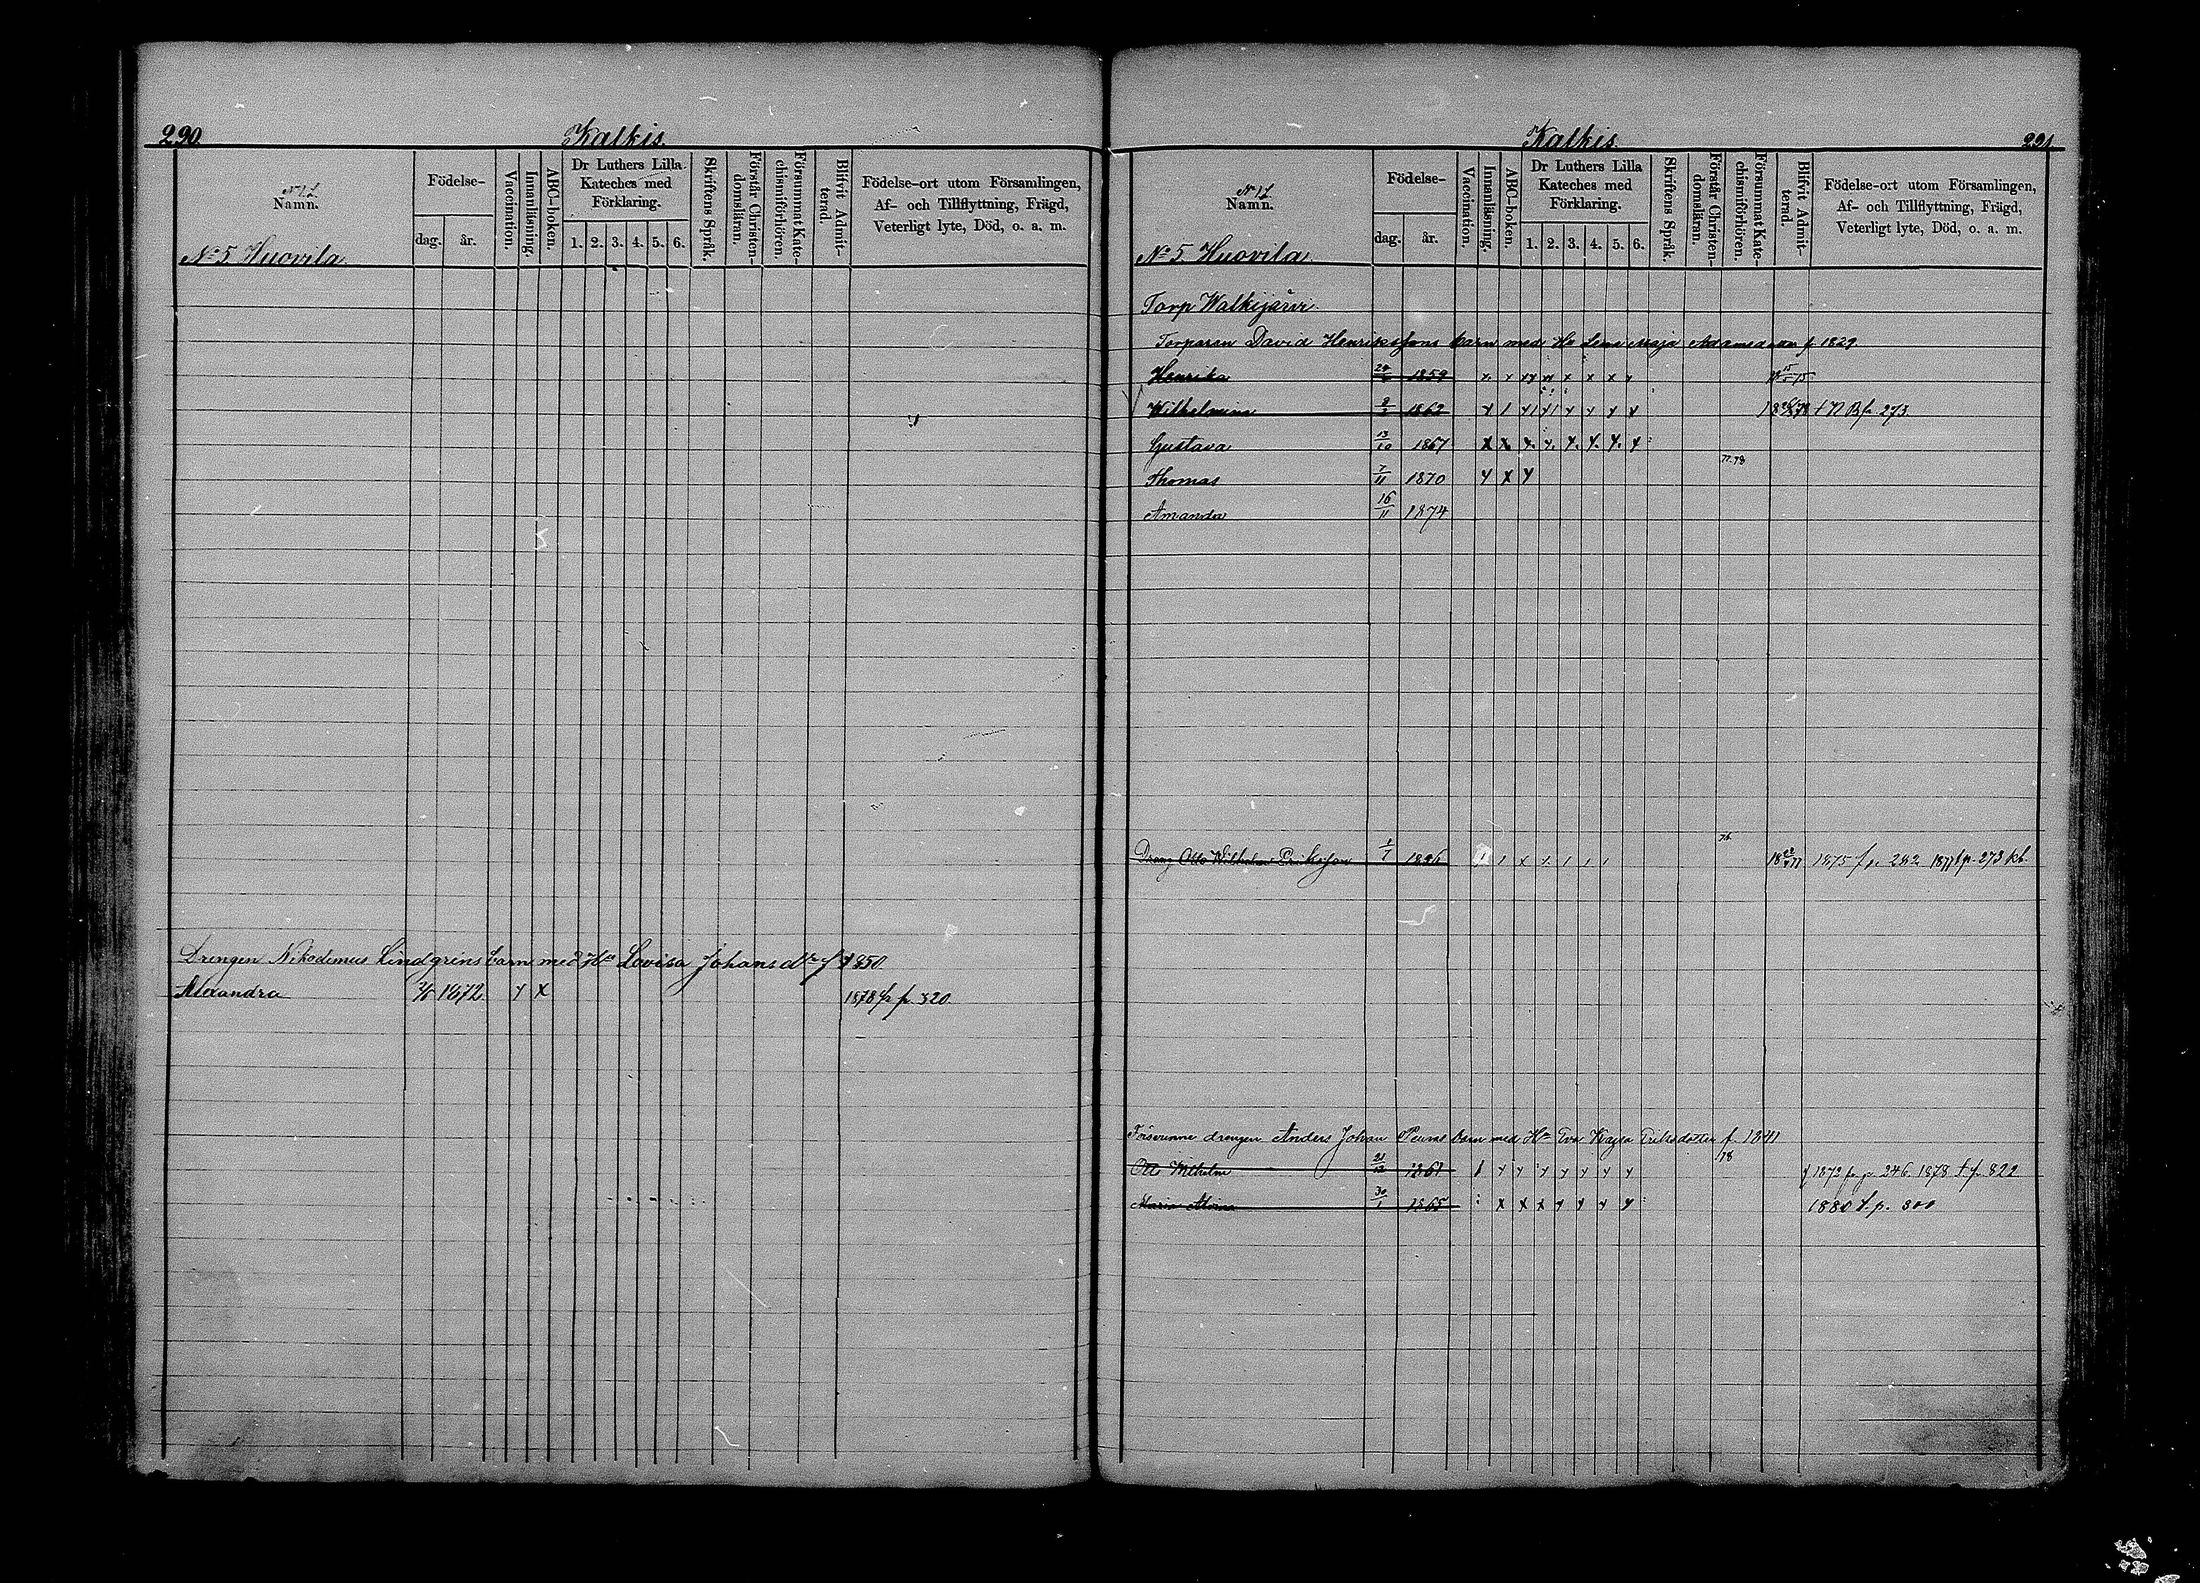 290. Kalkis.
Namn.
Födelse-
dag. år.
Vaccination.
Innanläsning.
ABC-boken.
Dr Luthers Lilla Kateches med Förklaring.
1. 2. 3. 4. 5. 6.
Skriftens Språk.
Förstår Christendomsläran.
Försummat Katechismiförhören.
Blifvit Admitterad.
Födelse-ort utom Församlingen,
Af- och Tillflyttning, Frägd,
Veterligt lyte, Död, o. a. m.
No 5 Huovila
Drengen Nikodemus Lindgrens barn med Hu Lovisa Johansdtr f 1850
Alexandra 1872 y x 1878 p. 320
Kalkis. 291
Namn.
Födelse-
dag. år.
Vaccination.
Innanläsning.
ABC-boken.
Dr Luthers Lilla Kateches med Förklaring.
1. 2. 3. 4. 5. 6.
Skriftens Språk.
Förstår Christendomsläran.
Försummat Katechismiförhören.
Blifvit Admitterad.
Födelse-ort utom Församlingen,
Af- och Tillflyttning, Frägd,
Veterligt lyte, Död, o. a. m.
No 5 Huovila
Torp Walkijärvi
Torparen David Henrikssons barn med Hu Lena Maja Adamsdotter f 1829
Henrika 1859
Wilhelmina 1862 273
Gustava 13/10 1867
77.78
Thomas 7/11 1870 y x y
Amanda 16/11 1874
76
Dreng Otto Wilhelm Eriksson 1/7 1875 f p. 282 1877 f p. 273 kb.
Försvunne drengen Anders Johan barn med Hu Eva Kajsa Eriksdotter f. 1841
78
Otto Wilhelm 21/12 1861 1872 fr p. 246 1878 f p. 322
Maria 30/1 1865 1880 f. p. 300